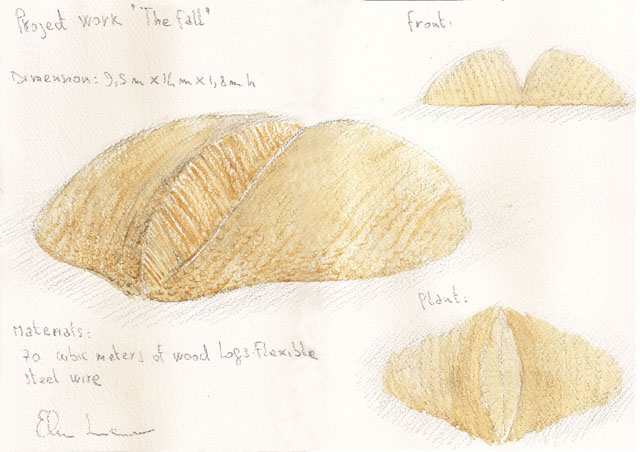 Project work "The fall"
front:
Dimension: 9,5 m x 14 m x 1,8 m h
plant:
Materials:
70 cubic meters of wood logs flexible
steel wire